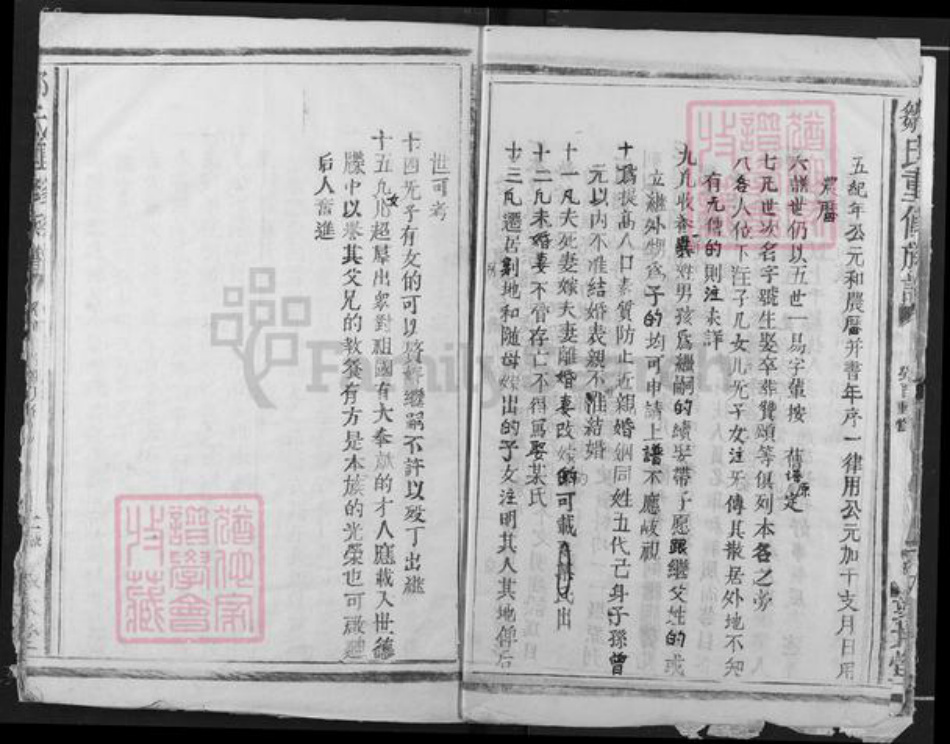 鄒氏重修族譜
五紀年公元和農曆并書年序一律用公元加干支月日用
農曆
六譜世仍以五世一易字輩按舊譜原定
七凡世次名字號生娶卒葬贊頌等俱列本各之旁
八各人位下注子几女几无子女注失傳其散居外地不知
有无傳的則注未詳
九凡收養異姓男孩為繼嗣的續娶帶子應跟繼父姓的或
立維外甥為子的均可申請上譜不應歧視
十為提高人口素質防止近親婚姻同姓五代己身子孫曾
元以內不准結婚表親不准結婚
十一凡夫死妻嫁夫妻離婚妻改嫁的可載某氏出
十二凡未婚妻不管存亡不得寫娶某氏
十三凡遷居別地和隨母嫁出的子女注明其人其地俾后
世可考
十四无子有女的可以贅婿繼嗣不許以歿丁出繼
十五凡兒女超羣出眾對祖國有大奉獻的才人應載入世德
牒中以彰其父兄的教養有方是本族的光榮也可啟迪
后人奮進
猶他家譜學會收藏
猶他家譜學會收藏
FamilySearch